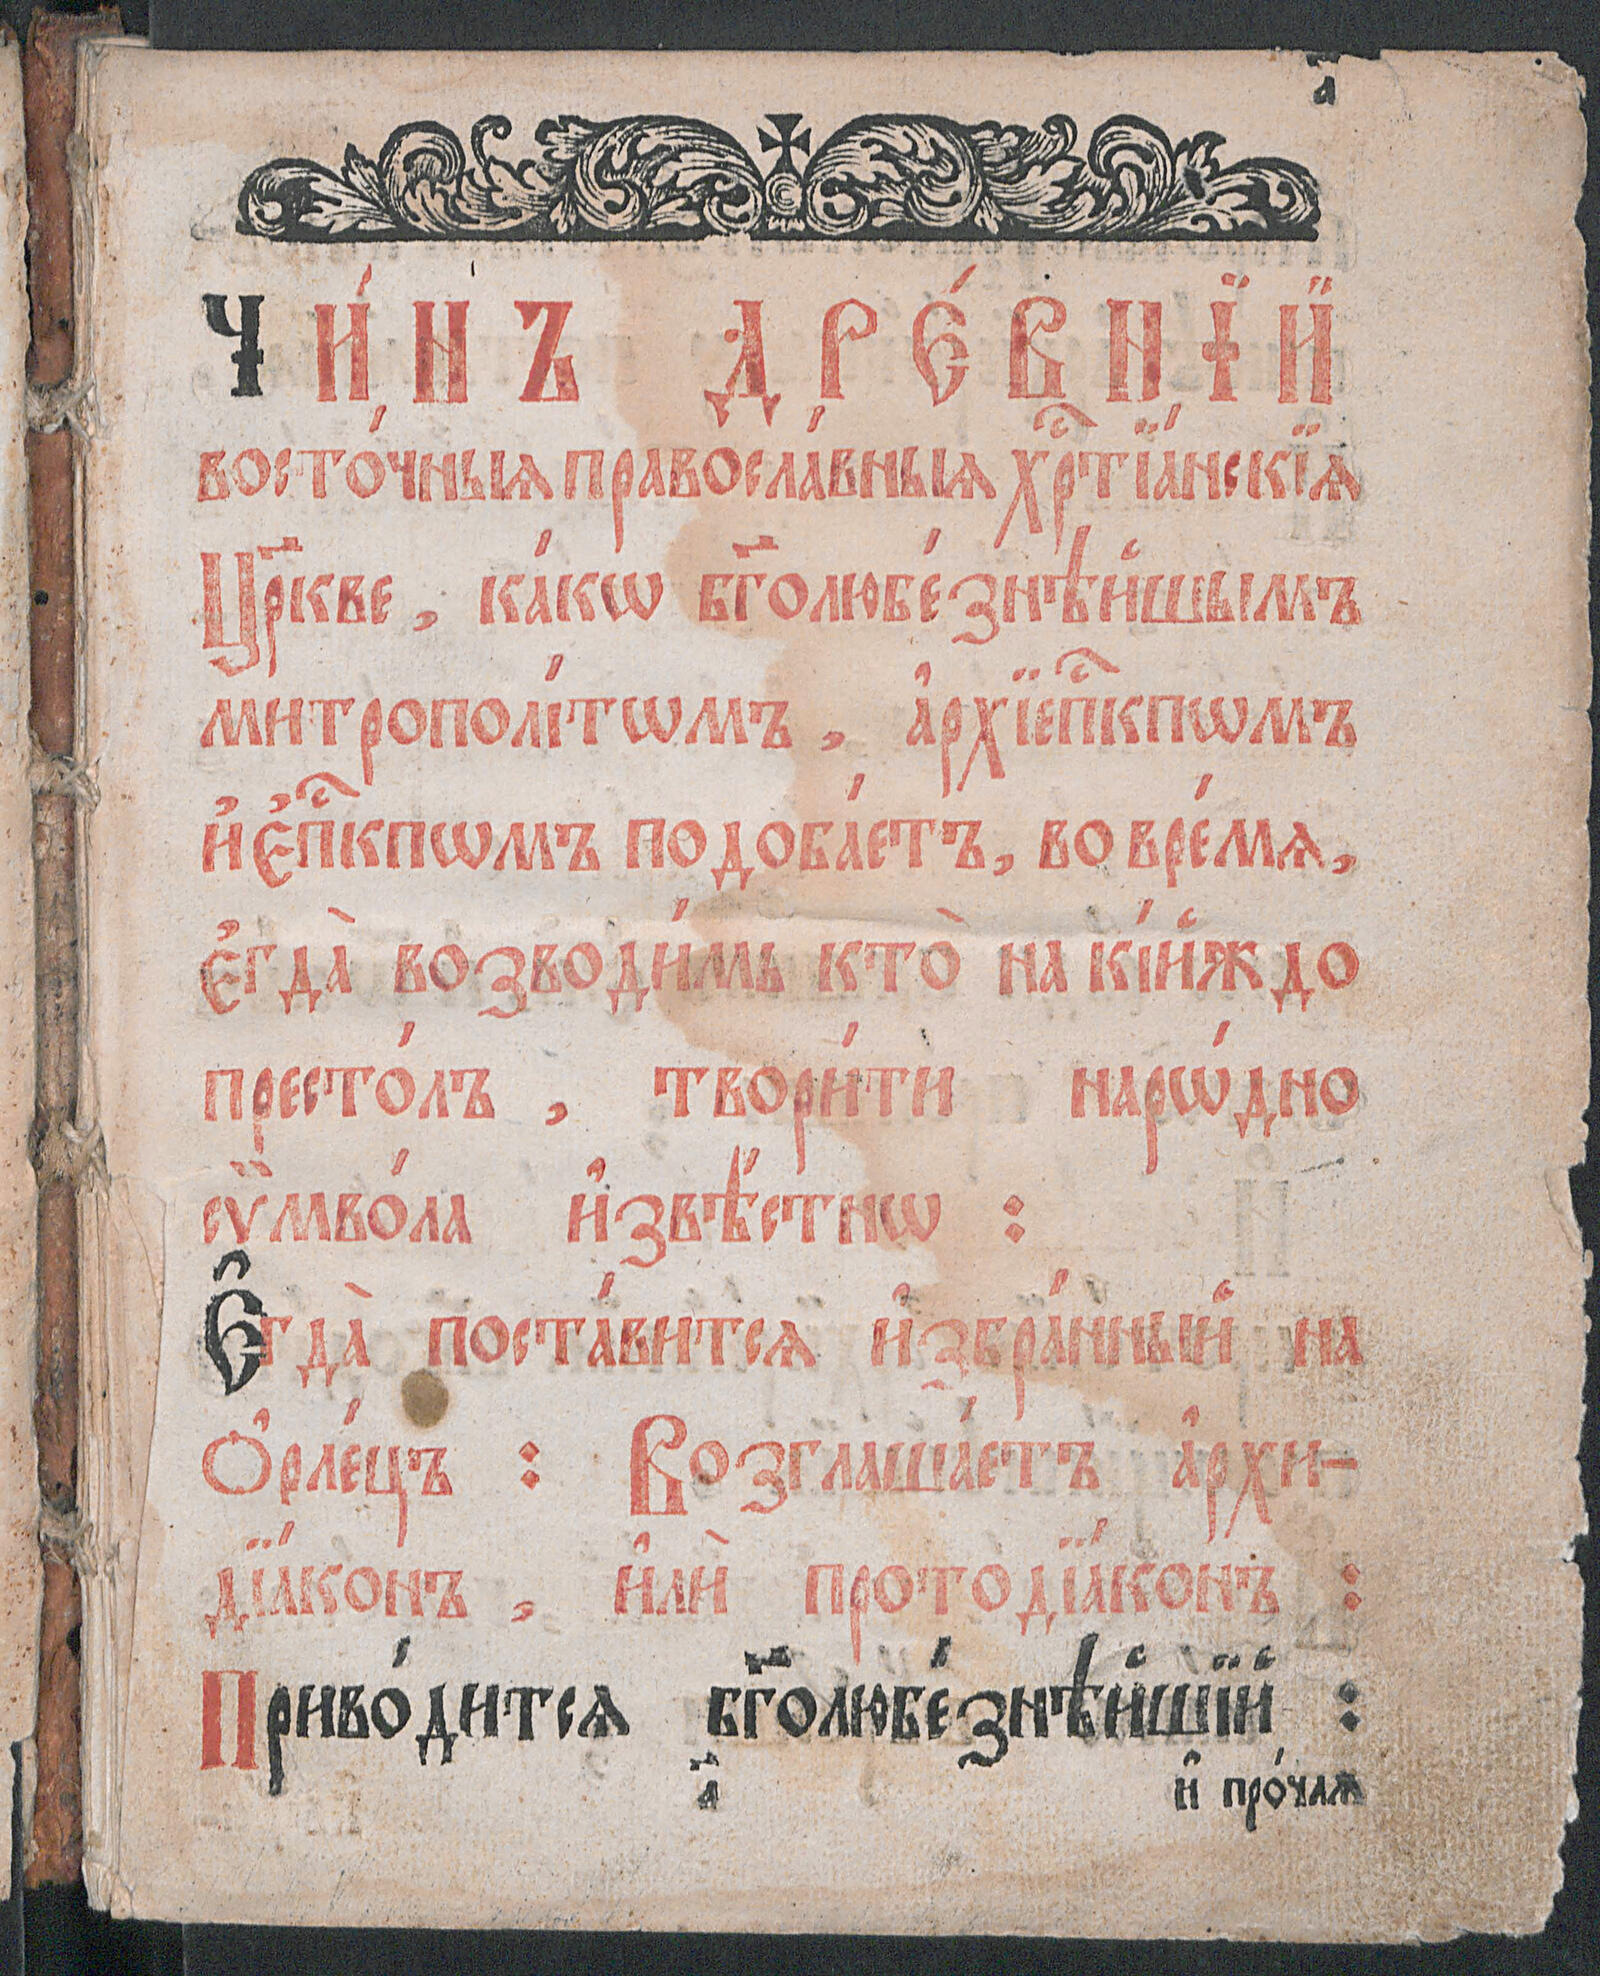 а҃
Чи́нъ дре́внїй
восто́чныѧ правосла́вныѧ хрⷭ҇тїа́нскїѧ
Цр҃кве, ка́кѡ бг҃олюбе́знѣйшымъ
митрополі́тѡмъ, а҆рхїепⷭ҇кпѡмъ
и҆ є҆пⷭ҇кпѡмъ подоба́етъ, во вре́мѧ,
є҆гда̀ возводи́мь кто̀ на кі́йждо
престо́лъ, твори́ти нарѡ́дно
сѵ̈мво́ла и҆звѣ́стнѡ :
Е҆гда̀ поста́витсѧ и҆збра́нный на
Ѻ҆рле́цъ : Возглаша́етъ а҆рхи-
дїа́конъ, и҆лѝ протодїа́конъ :
Приво́дитсѧ бг҃олюбе́знѣйшїй :
а҃ и҆ про́чаѧ